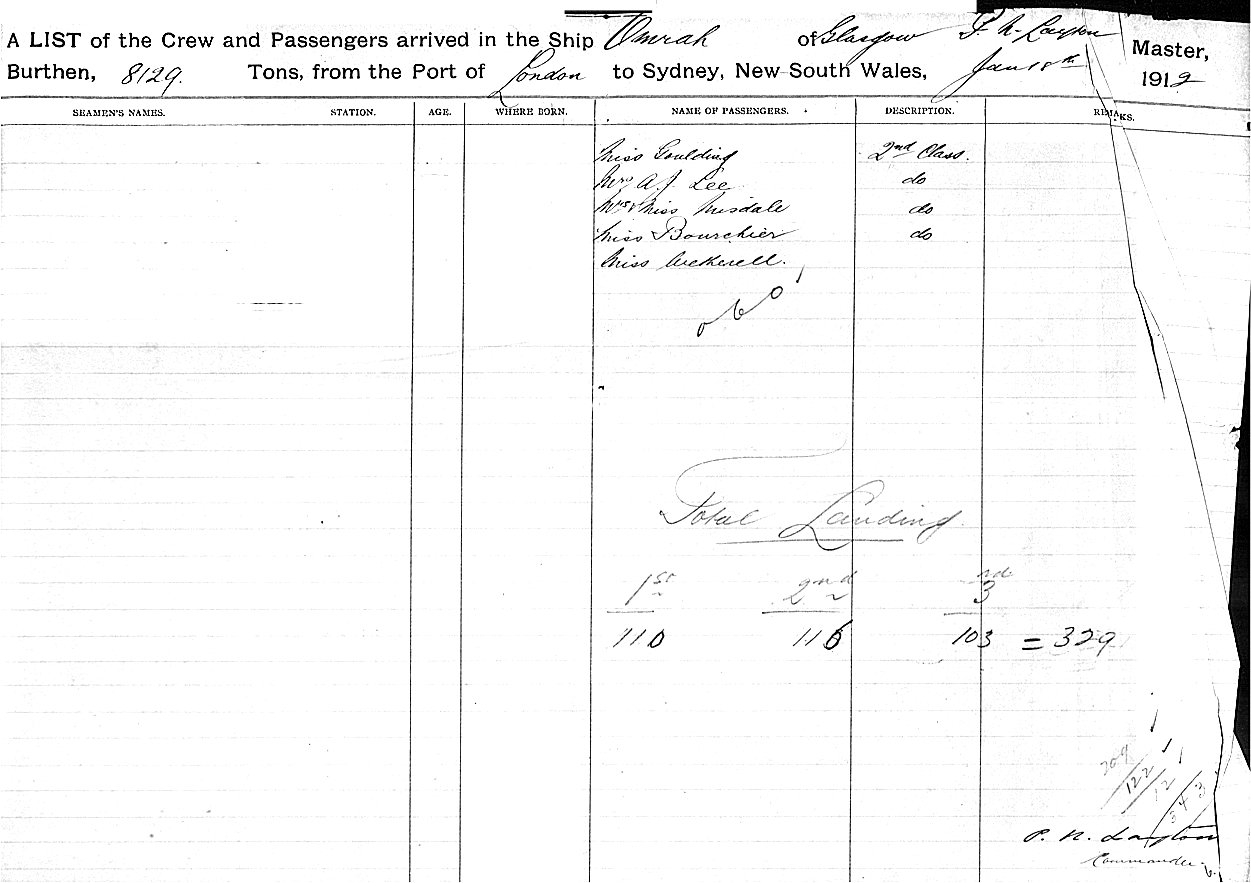 A LIST of the Crew and Passengers arrived in the Ship Omrah of Glasgow P. N. Layton Master,
Burthen, 8129. Tons, from the Port of London to Sydney, New South Wales, Jan 18th 1912
SEAMEN'S NAMES. STATION. AGE. WHERE BORN. NAME OF PASSENGERS. DESCRIPTION. REMARKS.
Miss Goulding 2nd Class.
Mrs A. J. Lee do
Mrs & Miss Nisdale do
Miss Bourchier do
Miss Wetherell.
Total Landing
1st 2nd 3rd
110 116 103 = 329
209
122
12
343
P. N. Layton
Commander